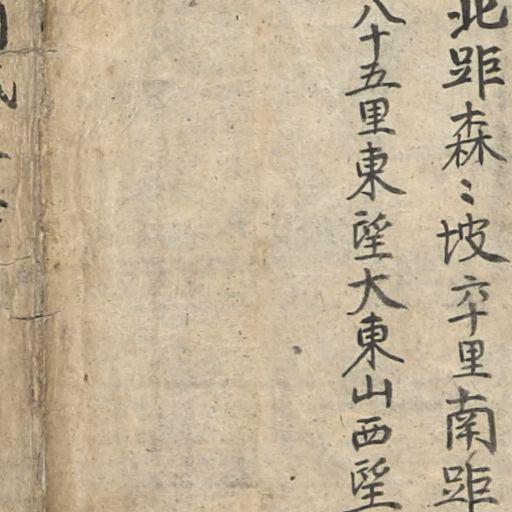 北距森〻坡卒里南距
八十五里東望大東山西望